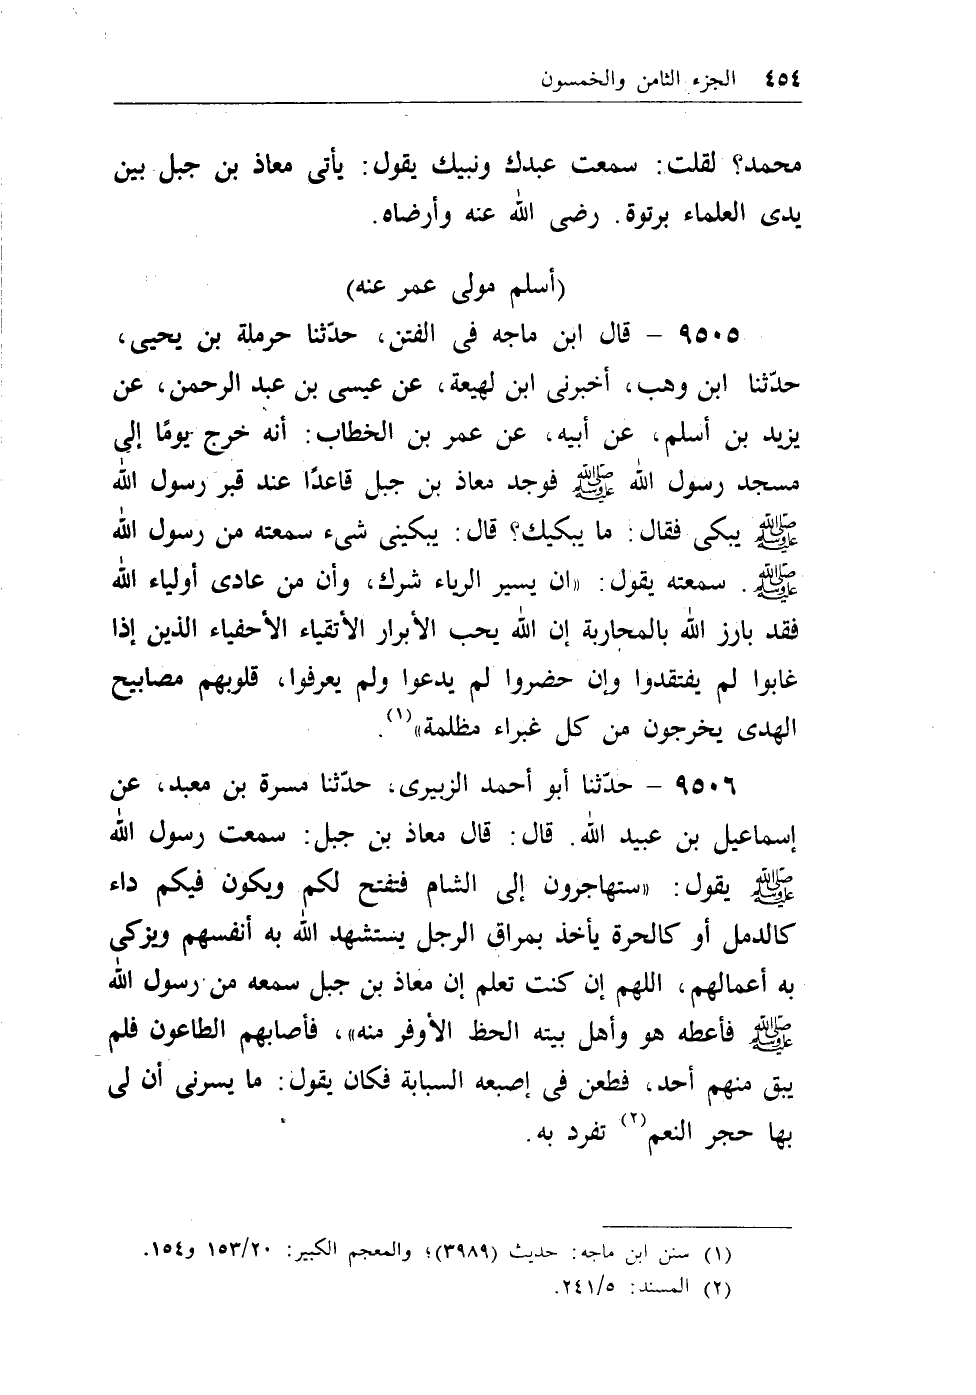 ٤٥٤ الجزء الثامن والخمسون
محمد؟ لقلت: سمعت عبدك ونبيك يقول: يأتى معاذ بن جبل بين
يدى العلماء برتوة. رضى الله عنه وأرضاه.
(أسلم مولى عمر عنه)
٩٥٠٥ - قال ابن ماجه فى الفتن، حدّثنا حرملة بن يحيى،
حدّثنا ابن وهب، أخبرنى ابن لهيعة، عن عيسى بن عبد الرحمن، عن
يزيد بن أسلم، عن أبيه، عن عمر بن الخطاب: أنه خرج يومًا إلى
مسجد رسول الله ﷺ فوجد معاذ بن جبل قاعدًا عند قبر رسول الله
ﷺ يبكى فقال: ما يبكيك؟ قال: يبكينى شىء سمعته من رسول الله
ﷺ. سمعته يقول: «ان يسير الرياء شرك، وأن من عادى أولياء الله
فقد بارز الله بالمحاربة إن الله يحب الأبرار الأتقياء الأحفياء الذين إذا
غابوا لم يفتقدوا وإن حضروا لم يدعوا ولم يعرفوا، قلوبهم مصابيح
الهدى يخرجون من كل غبراء مظلمة»(١).
٩٥٠٦ - حدّثنا أبو أحمد الزبيرى، حدّثنا مسرة بن معبد، عن
إسماعيل بن عبيد الله. قال: قال معاذ بن جبل: سمعت رسول الله
ﷺ يقول: «ستهاجرون إلى الشام فتفتح لكم ويكون فيكم داء
كالدمل أو كالحرة يأخذ بمراق الرجل يستشهد الله به أنفسهم ويزكى
به أعمالهم، اللهم إن كنت تعلم إن معاذ بن جبل سمعه من رسول الله
ﷺ فأعطه هو وأهل بيته الحظ الأوفر منه»، فأصابهم الطاعون فلم
يبق منهم أحد، فطعن فى إصبعه السبابة فكان يقول: ما يسرنى أن لى
بها حجر النعم(٢) تفرد به.
(١) سنن ابن ماجه: حديث (٣٩٨٩)؛ والمعجم الكبير: ١٥٣/٢٠ و١٥٤.
(٢) المسند: ٢٤١/٥.